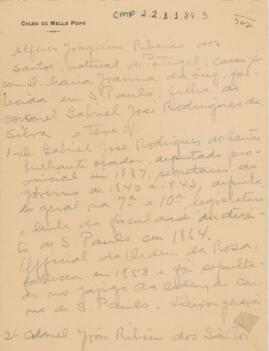 CELSO DE MELLO PUPO
CMP 2.2.1.1.84.9
Alferes Joaquim Ribeiro dos
Santos, natural de Portugal, casou
com D. Maria Joanna da Luz, fal-
lecida em S. Paulo, filha do
coronel Gabriel José Rodrigues da
Silva e teve:
1- Gabriel José Rodrigues dos Santos
brilhante orador, deputado pro-
vincial em 1837, secretario do
governo de 1840 a 1842, deputa-
do geral na 7ª e 10ª legislatura
e lente da faculdade de direi-
to de S. Paulo em 1854.
Official da Ordem da Rosa,
falleceu em 1858 e foi sepulta-
do no jazigo da ordem do car-
mo de S. Paulo. Deixou geração
2- Coronel João Ribeiro dos Santos